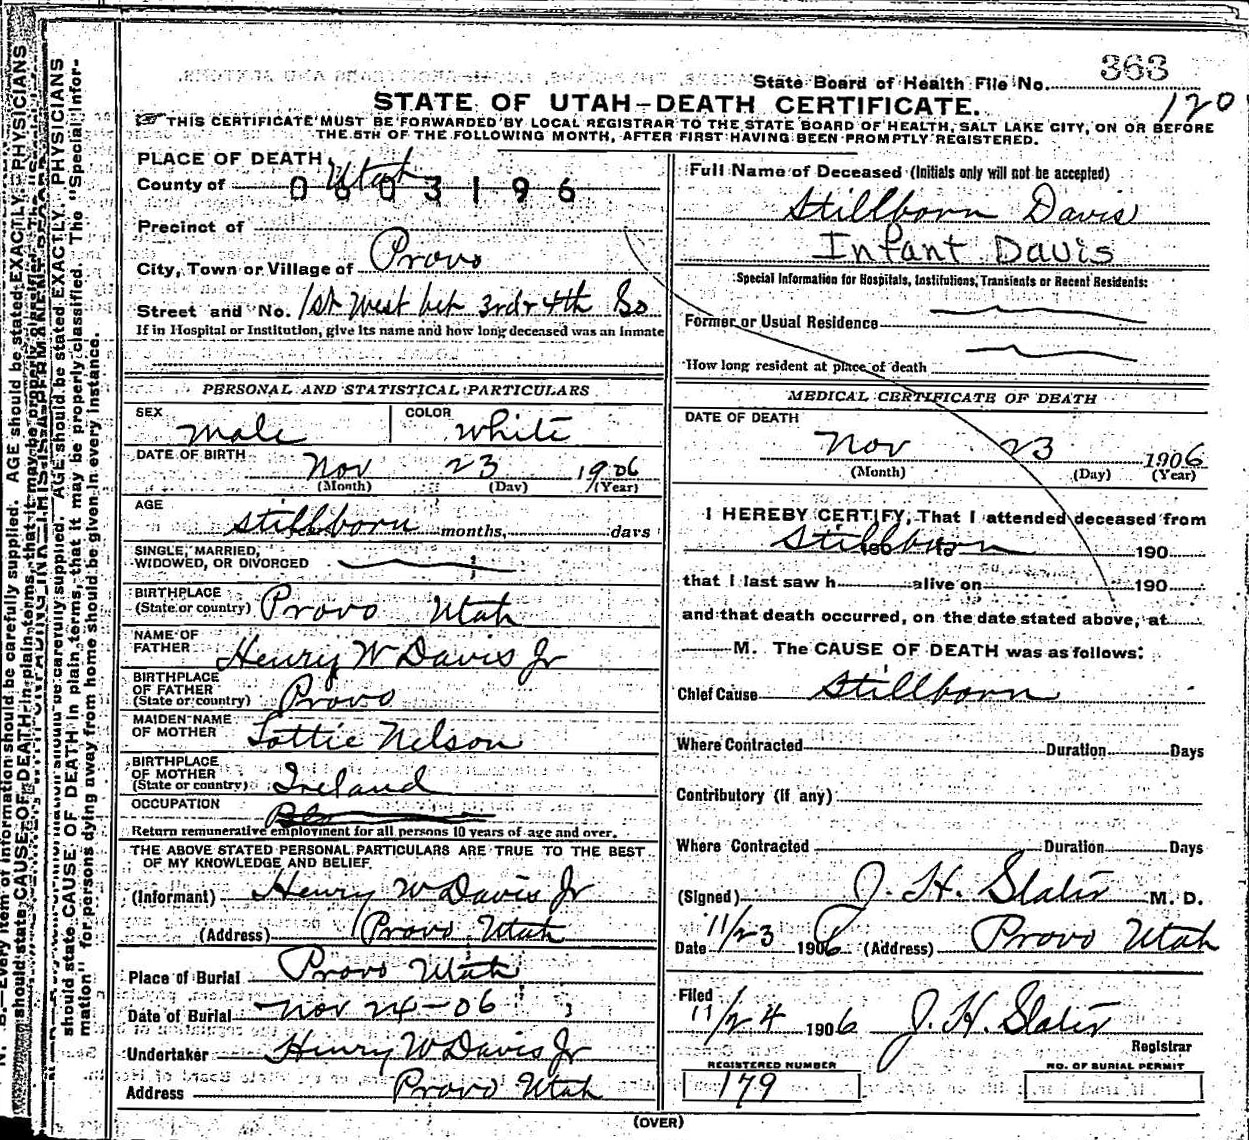 State Board of Health File No. 363
120
STATE OF UTAH-DEATH CERTIFICATE.
THIS CERTIFICATE MUST BE FORWARDED BY LOCAL REGISTRAR TO THE STATE BOARD OF HEALTH, SALT LAKE CITY, ON OR BEFORE
THE 5TH OF THE FOLLOWING MONTH, AFTER FIRST HAVING BEEN PROMPTLY REGISTERED.
PLACE OF DEATH
County of Utah
0603196
Precinct of
City, Town or Village of Provo
Street and No. 1st West bet 3rd & 4th So
If in Hospital or Institution, give its name and how long deceased was an inmate
PERSONAL AND STATISTICAL PARTICULARS
SEX Male COLOR White
DATE OF BIRTH Nov 23 1906
(Month) (Day) (Year)
AGE Stillborn months, days
SINGLE, MARRIED,
WIDOWED, OR DIVORCED
BIRTHPLACE
(State or country) Provo Utah
NAME OF
FATHER Henry W Davis Jr
BIRTHPLACE
OF FATHER
(State or country) Provo
MAIDEN NAME
OF MOTHER Lottie Nelson
BIRTHPLACE
OF MOTHER
(State or country) Ireland
OCCUPATION
Return remunerative employment for all persons 10 years of age and over.
THE ABOVE STATED PERSONAL PARTICULARS ARE TRUE TO THE BEST
OF MY KNOWLEDGE AND BELIEF
(Informant) Henry W Davis Jr
(Address) Provo Utah
Place of Burial Provo Utah
Date of Burial Nov 24-06
Undertaker Henry W Davis Jr
Address Provo Utah
Full Name of Deceased (Initials only will not be accepted)
Stillborn Davis
Infant Davis
Special Information for Hospitals, Institutions, Transients or Recent Residents:
Former or Usual Residence
How long resident at place of death
MEDICAL CERTIFICATE OF DEATH
DATE OF DEATH
Nov 23 1906
(Month) (Day) (Year)
I HEREBY CERTIFY, That I attended deceased from
Stillborn 190
that I last saw h alive on 190
and that death occurred, on the date stated above, at
M. The CAUSE OF DEATH was as follows:
Chief Cause Stillborn
Where Contracted Duration Days
Contributory (if any)
Where Contracted Duration Days
(Signed) J. H. Slater M. D.
Date 11/23 1906 (Address) Provo Utah
Filed
11/24 1906 J. H. Slater
Registrar
REGISTERED NUMBER
179
NO. OF BURIAL PERMIT
(OVER)
N. B.—Every item of information should be carefully supplied. AGE should be stated EXACTLY. PHYSICIANS
should state CAUSE OF DEATH in plain terms, that it may be properly classified. The "Special Infor-
mation" for persons dying away from home should be given in every instance.